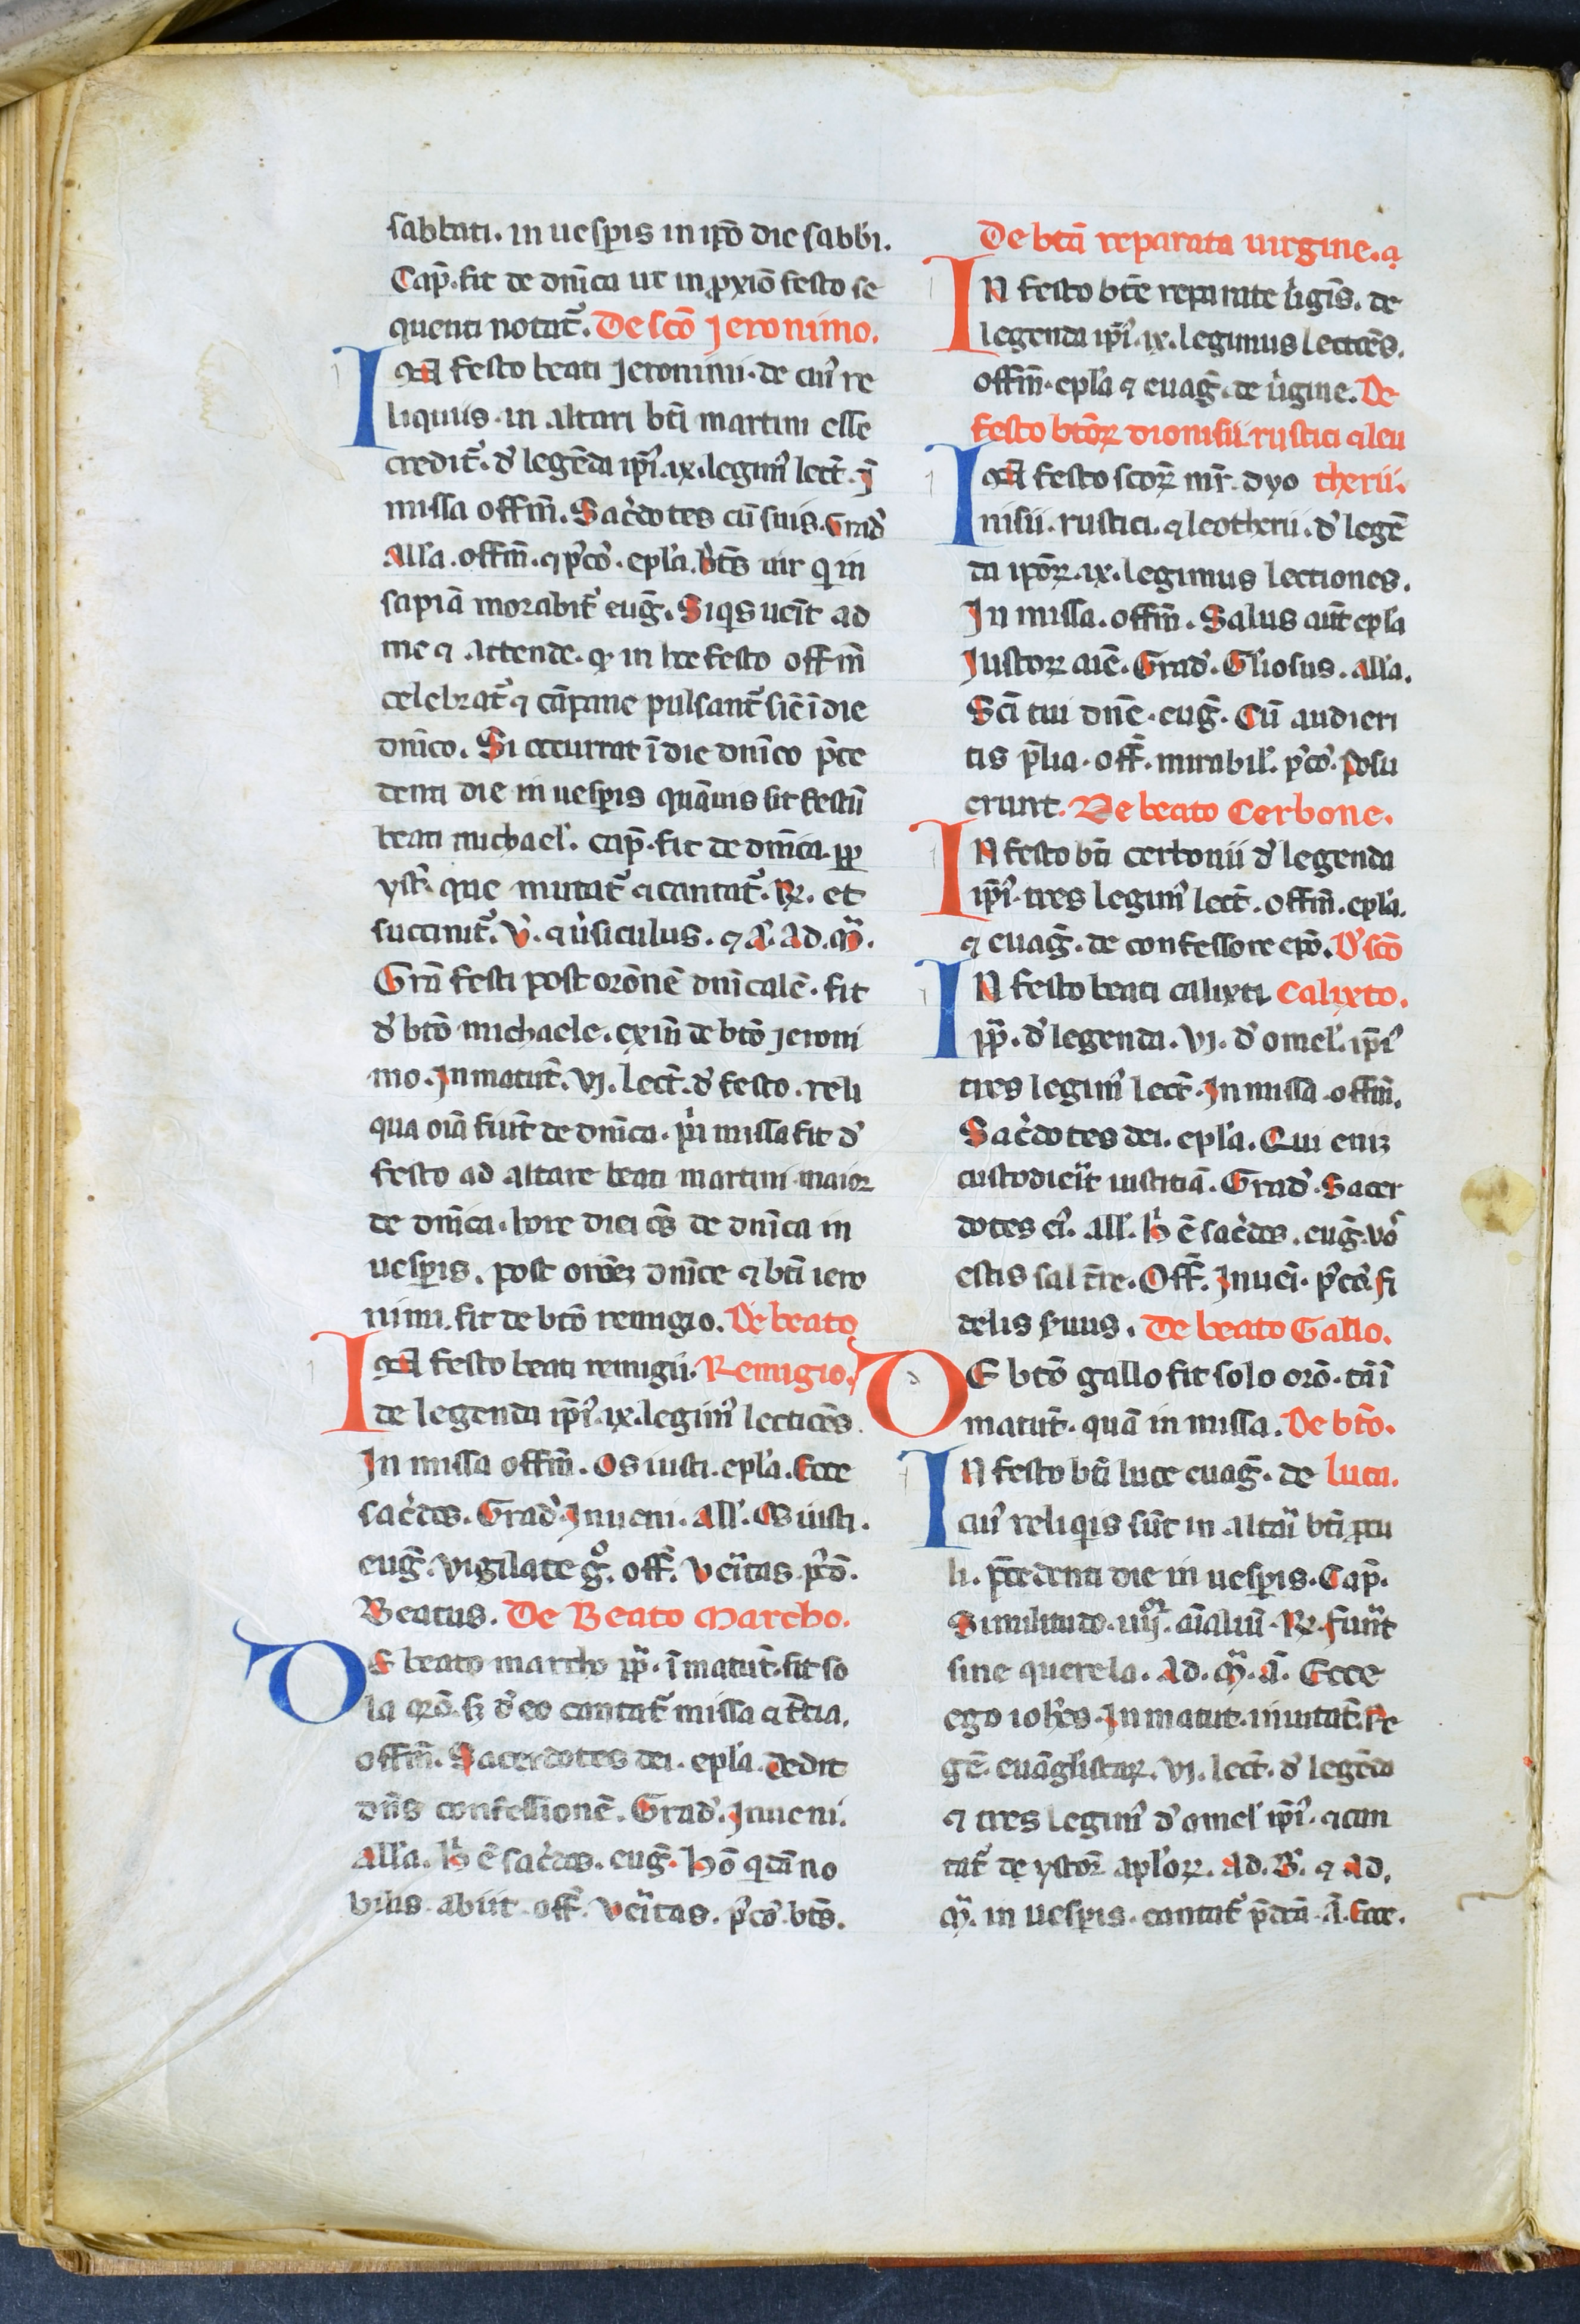 sabbati. in uesp̄is in ip̄o die sabb̄i.
Cap̄. fit de dn̄ica ut in p̱xīo festo se
quenti notat᷑. De scō Jeronimo.
IN festo beati Jeronimi. de cui᷒ re
liquiis. in altari bt̄i martini esse
credit᷑. d᷒ legēda ip̄i᷒. ix. legim᷒ lect̄. ī
missa offm̄. Sac̓dotes cū suis. Grad᷒
All'a. offm̄. ⁊ p᷒cō. epl'a. b̄tꝰ uir q̇ in
sapiā morabit᷑ eug̅. Siq̇s uēit ad
me ⁊ attende. ꝙ in hoc festo offm̄
celebrat᷑ ⁊ cāpane pulsant᷑ sic̄ ī die
dn̄ico. Si occurrat ī die dn̄ico p̄ce
denti die in uesp̄is quāuis sit festū
beati michael'. cap̄. fit de dn̄ica. ꝓꝑ
yst̄. que mutat᷑ ⁊ cantat᷑. ℟. et
succinit᷑. V̓. ⁊ ūsiculus. ⁊ A̓. Ad. M̄.
Grā festi post orōnē dn̄icalē. fit
d᷒ btō michaele. exīn de btō jeroni
mo. In matut̄. vj. lect̄. d᷒ festo. reli
qua oīa fiūt de dn̄ica. p̓ri missa fit d᷒
festo ad altare beati martini. maioꝛ
de dn̄ica. hore diei oēs de dn̄ica in
uesp̄is. post orōēꝫ dn̄ice ⁊ bt̄i iero
nimi. fit de btō remigio. De beato
IN festo beati remigii. Remigio.
de legenda ip̄i᷒. ix. legim᷒ lectiōēs.
In missa offm̄. Os iusti. epl'a. Ecce
sac̓dos. Grad᷒. Inueni. All'. Os iusti.
eug̅. Vigilate g᷒. off̄. Ueritas. p᷒cō.
Beatus. De Beato Marcho.
DE beato marcho pp̄. ī matut̄. fit so
la orō. sꝫ d᷒ eo cantat᷑ missa ⁊ t̄cia.
offm̄. Sacerdotes dei. epl'a. Dedit
dn̄s confessionē. Grad᷒. Inueni.
All'a. h̓ ē sac̓dos. eug̅. Hō q̇dā no
bilis abiit. off̄. Ueritas. p᷒cō. btꝰ.
De btā reparata uirgine. ⁊
IN festo btē reparate ūigīs. de
legenda ip̄i᷒. ix. legimus lectōēs.
offm̄. epl'a ⁊ euag̅. de ūgine. De
festo btōꝝ dionisii. rustici ⁊ leu
IN festo scoꝝ mr̄. dyo therii.
nisii. rustici. ⁊ leotherii. d᷒ legē
da ip̄oꝝ. ix. legimus lectiones.
In missa. offm̄. Salus aūt epl'a
Iustoꝝ aīe. Grad᷒. Gl'iosus. All'a.
Scī tui dn̄e. eug̅. Cū audieri
tis p̄lia. off̄. mirabil'. p᷒cō. Posu
erunt. De beato Cerbone.
IN festo bt̄i cerbonii d᷒ legenda
ip̄i᷒. tres legim᷒ lect̄. offm̄. epl'a.
⁊ euag̅. de confessore ep̄o. D᷒ scō
IN festo beati calixti Calixto.
pp̄. d᷒ legenda. vj. d᷒ omel'. ip̄i᷒
tres legim᷒ lect̄. In missa. offm̄.
Sac̓dotes dei. epl'a. Qui eniꝫ
custodierīt iustitiā. Grad᷒. Sacer
dotes ei᷒. All'. h̓ ē sac̓dos. eug̅. Vos
estis sal tr̄e. Off̄. Inueni. p᷒cō. fi
delis ūus. De beato Gallo.
DE btō gallo fit solo orō. tā ī
matut̄. quā in missa. De btō.
IN festo bt̄i luce euag̅. de luca.
cui᷒ reliq̇is sūt in altari bt̄i pau
li. p̄cedenti die in uesp̄is. Cap̄.
Similitudo. iiij. aīaliū. ℟. fuert̄
sine querela. Ad. M̄. A̓. Ecce
ego ioh̄es. In matut̄. inuitat̄. Re
gē. euāgl'istaꝝ. vj. lect̄. d᷒ legēda
⁊ tres legim᷒ d᷒ omel' ip̄i᷒. ⁊ can
tat᷑ de ystoꝛ. apl'oꝝ. Ad. B̓. ⁊ Ad.
M̄. in uesp̄is. cantat᷑ p̄dcā. A̓. Ecce.